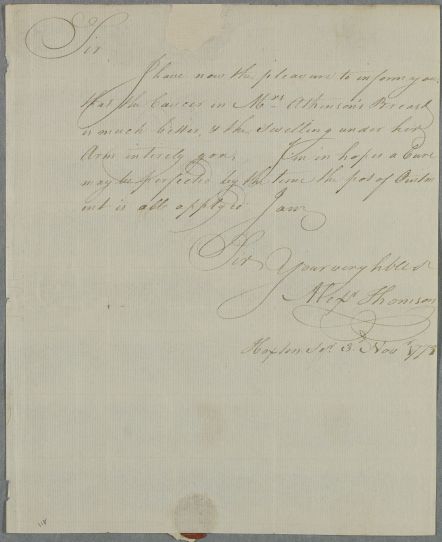 Sir
I have now the pleasure to inform you,
that the Cancer in Mrs. Atkinson's Breast
is much better, & the Swelling under her
Arm intirely gon, I'm in hopes a Cure
may be perfected by the time the pot of Ointm
ent is all apply'd I am
Sir
Your very hble St
Alexr Thomson
Hoxton Sqr 3 Novr